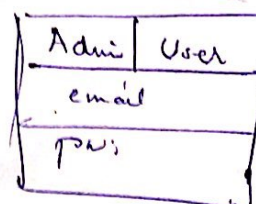 Admi User
email
pws